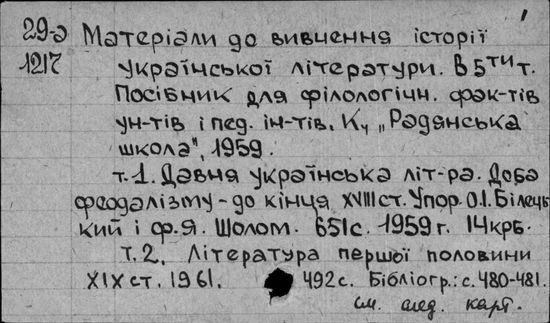 29-а Матеріали до вивчення історії
1217 української літератури. В 5ти т.
Посібник для філологічн. фак-тів
ун-тів і пед. ін-тів. К., „Радянська
школа", 1959.
т.1. Давня українська літ-ра. Доба
феодалізму - до кінця XVIII ст. Упор. О.І. Білець
кий і Ф.Я. Шолом. 651с. 1959 г. 14крб.
т.2. Література першої половини
XIX ст. 1961. 492с. Бібліогр.: с.480-481.
см. след. карт.